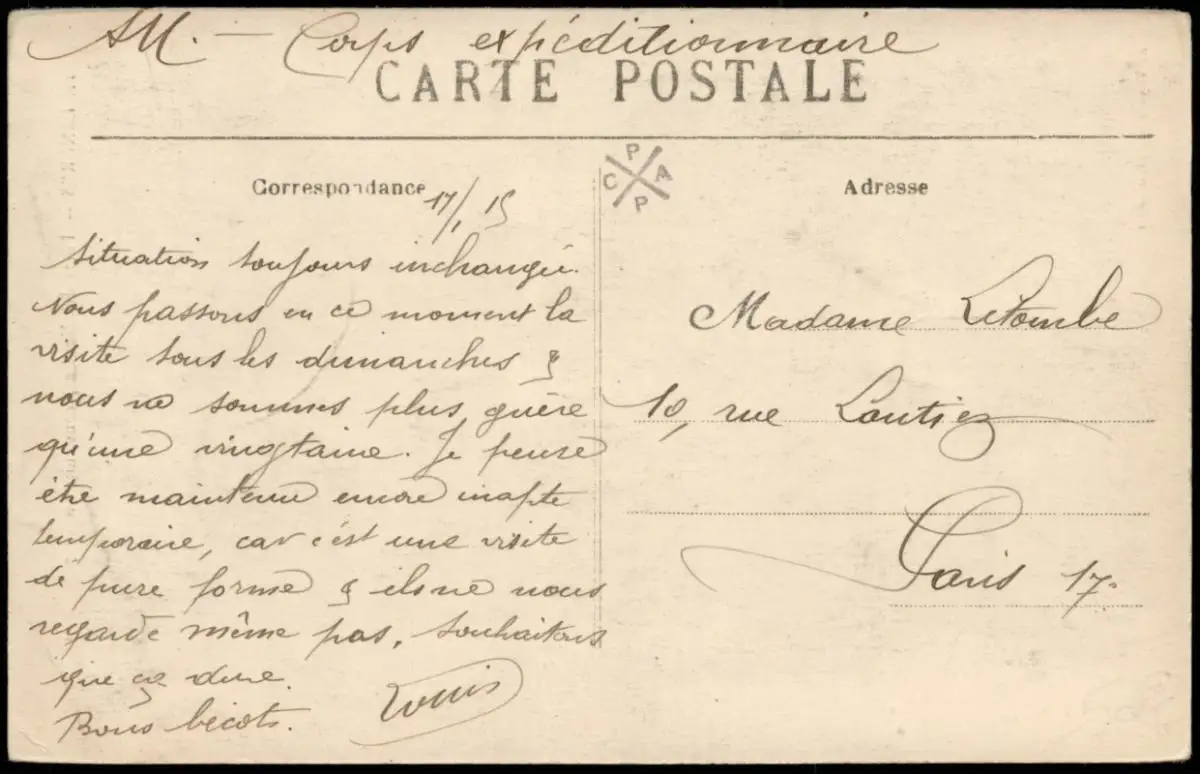 SM. — Corps expéditionnaire
CARTE POSTALE
P
C A
P
Correspondance
Adresse
17/1 15
Situation toujours inchangée.
Nous passons en ce moment la
visite tous les dimanches &
nous ne sommes plus guère
qu'une vingtaine. Je pense
être maintenu encore inapte
temporaire, car c'est une visite
de pure forme & ils ne nous
regarde même pas. Souhaitons
que ça dure.
Bons bécots. Louis
Madame Letombe
10, rue Lantiez
Paris 17.